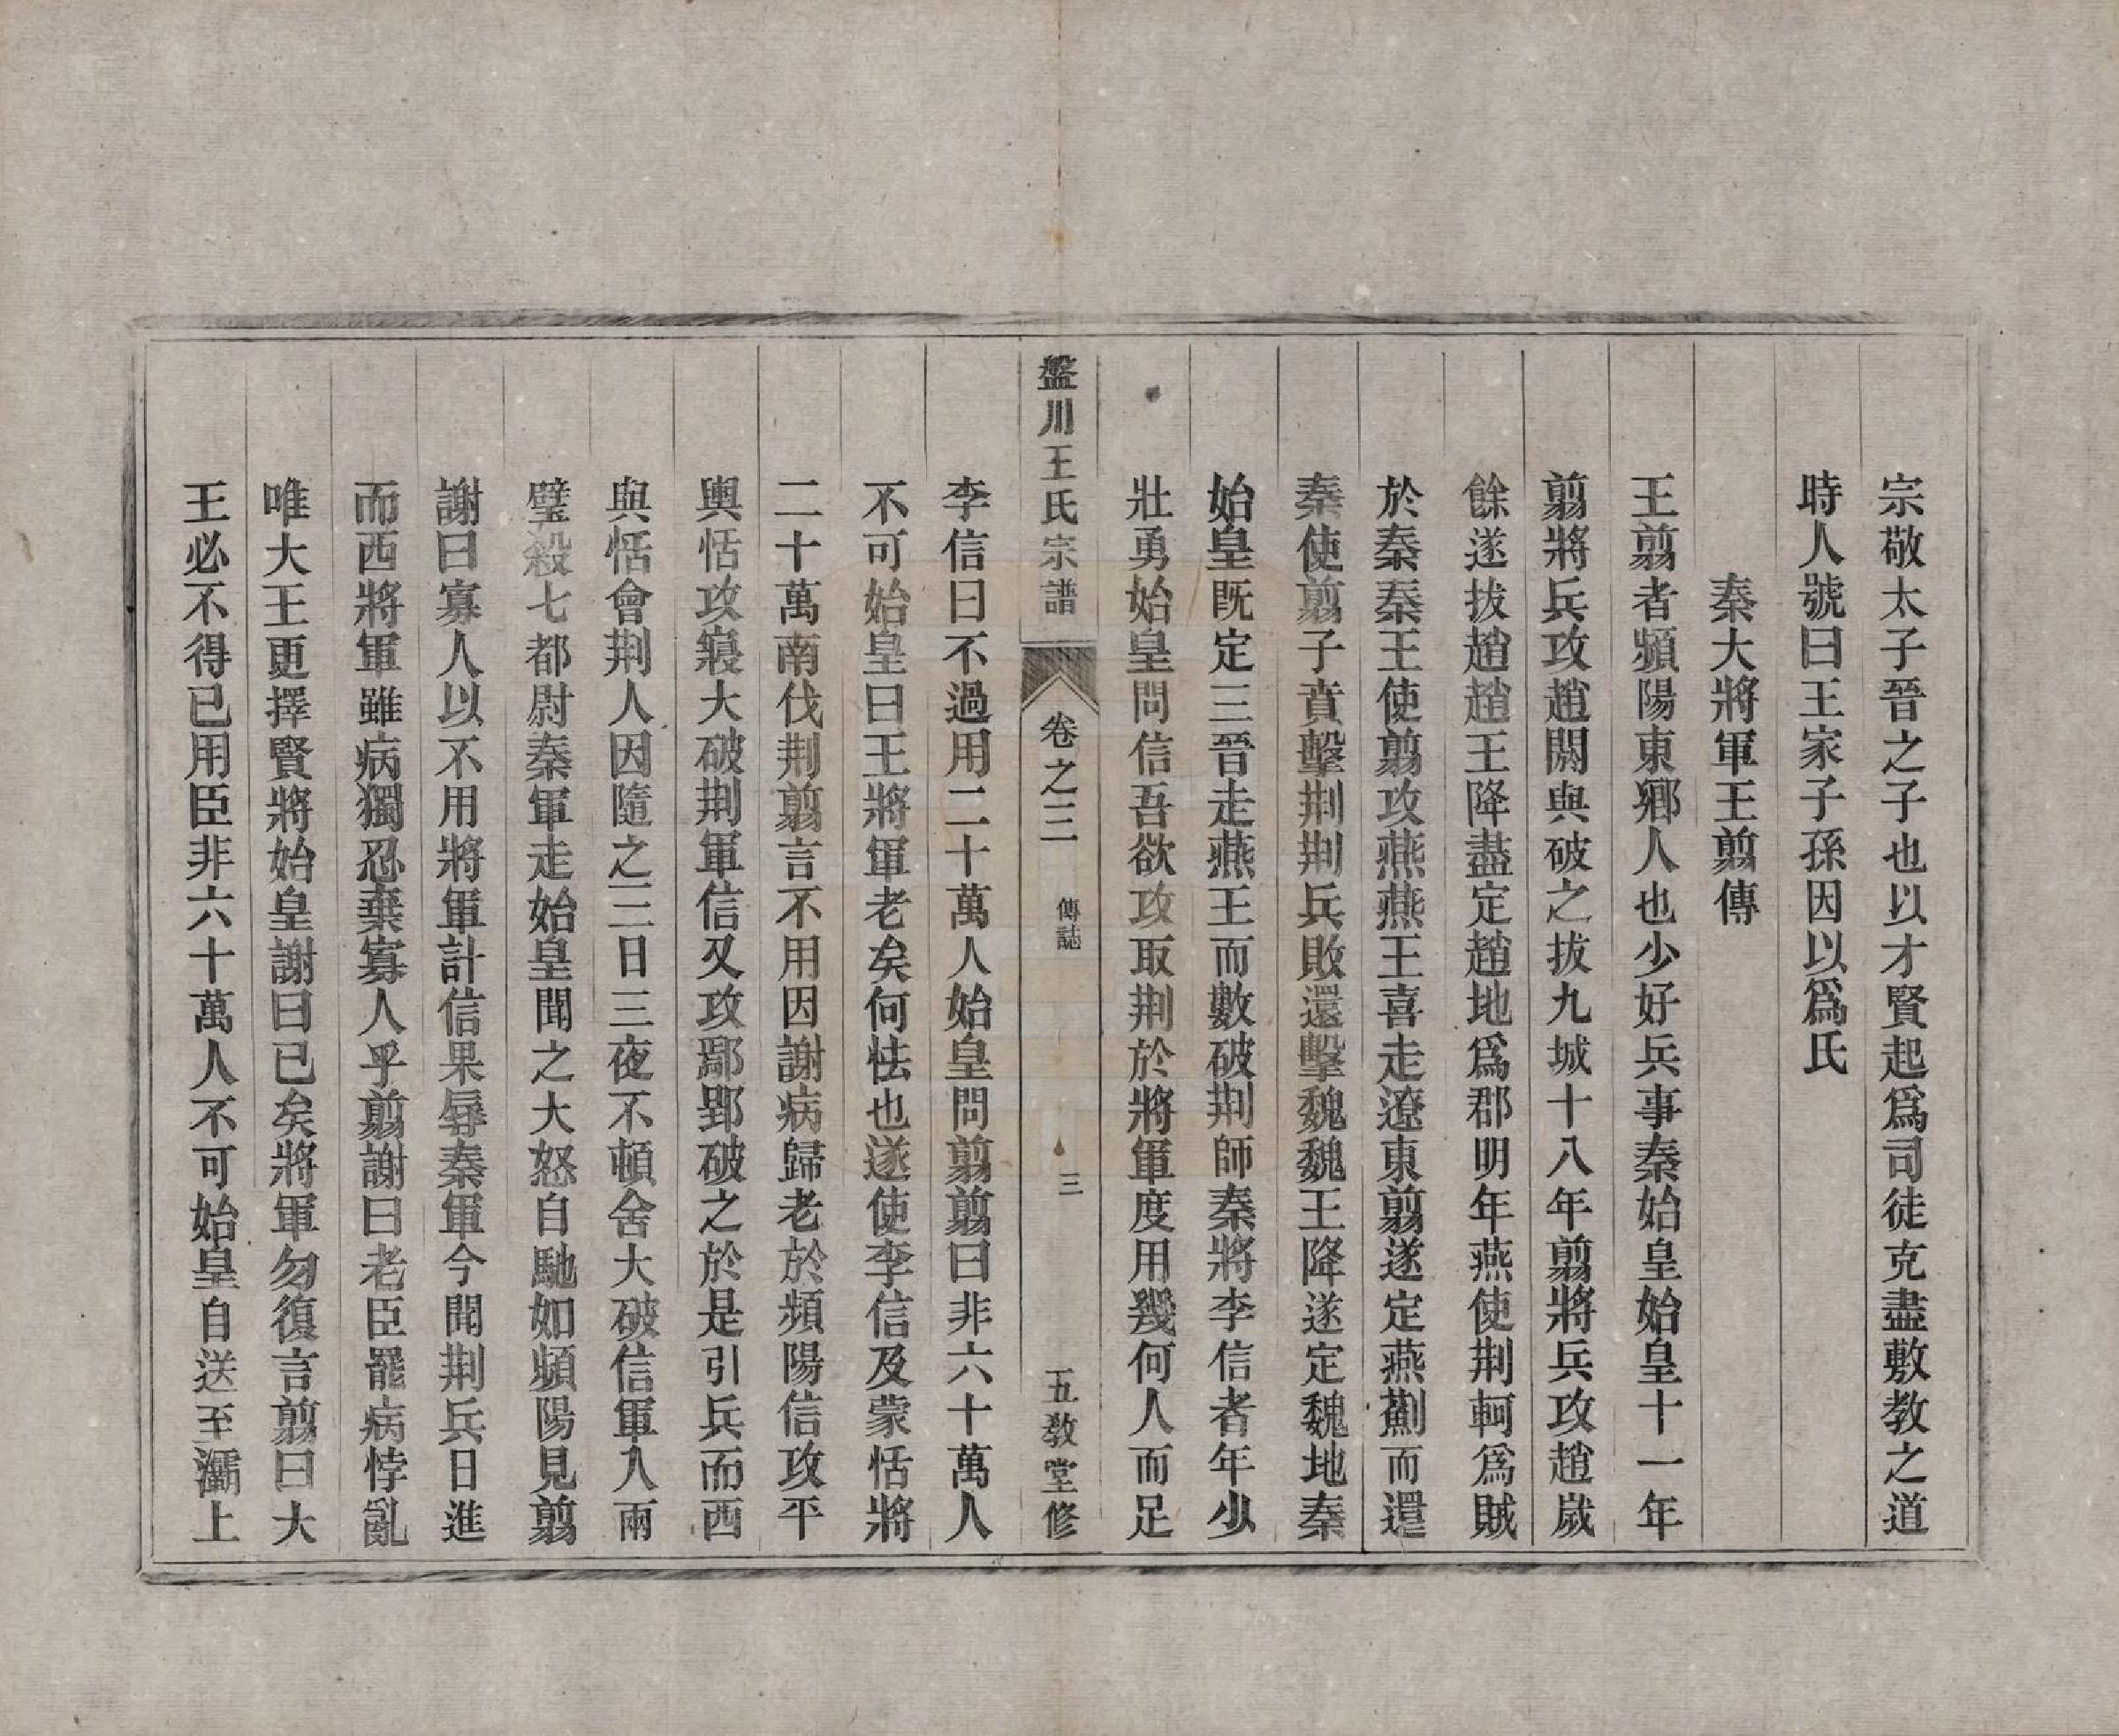 宗敬太子晉之子也以才賢起爲司徒克盡敷教之道
時人號曰王家子孫因以爲氏
秦大將軍王翦傳
王翦者頻陽東鄉人也少好兵事秦始皇始皇十一年
翦將兵攻趙閼與破之拔九城十八年翦將兵攻趙歲
餘遂拔趙趙王降盡定趙地爲郡明年燕使荆軻爲賊
於秦秦王使翦攻燕燕王喜走遼東翦遂定燕薊而還
秦使翦子賁擊荆荆兵敗還擊魏魏王降遂定魏地秦
始皇既定三晉走燕王而數破荆師秦將李信者年少
壯勇始皇問信吾欲攻取荆於將軍度用幾何人而足
盤川王氏宗譜
卷之三
傳誌
三
五教堂修
李信曰不過用二十萬人始皇問翦翦曰非六十萬人
不可始皇曰王將軍老矣何怯也遂使李信及蒙恬將
二十萬南伐荆翦言不用因謝病歸老於頻陽信攻平
輿恬攻寢大破荆軍信又攻鄢郢破之於是引兵而西
與恬會荆人因隨之三日三夜不頓舍大破信軍入兩
壁殺七都尉秦軍走始皇聞之大怒自馳如頻陽見翦
謝曰寡人以不用將軍計信果辱秦軍今聞荆兵日進
而西將軍雖病獨忍棄寡人乎翦謝曰老臣罷病悖亂
唯大王更擇賢將始皇謝曰已矣將軍勿復言翦曰大
王必不得已用臣非六十萬人不可始皇自送至灞上